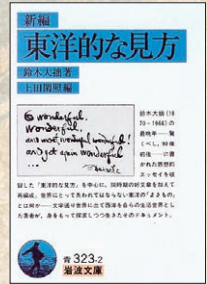 新編
東洋的な見方
鈴木大拙著
上田閑照編
O wonderful,
wonderful,
and most wonderful wonderful!
and yet again wonderful
鈴木大拙(18
70-1966)の
最晩年
に書
かれた思想的
エッセイを収
録した『東洋的な見方』を中心に,同時期の好文章を加えて
再編成。世界にとって失われてはならない東洋の「よきもの」
とは何か――文字通り世界に出て西洋を自らの生活世界とし
た著者が,身をもって探求しつづきたそのドキュメント。
青 323-2
岩波文庫